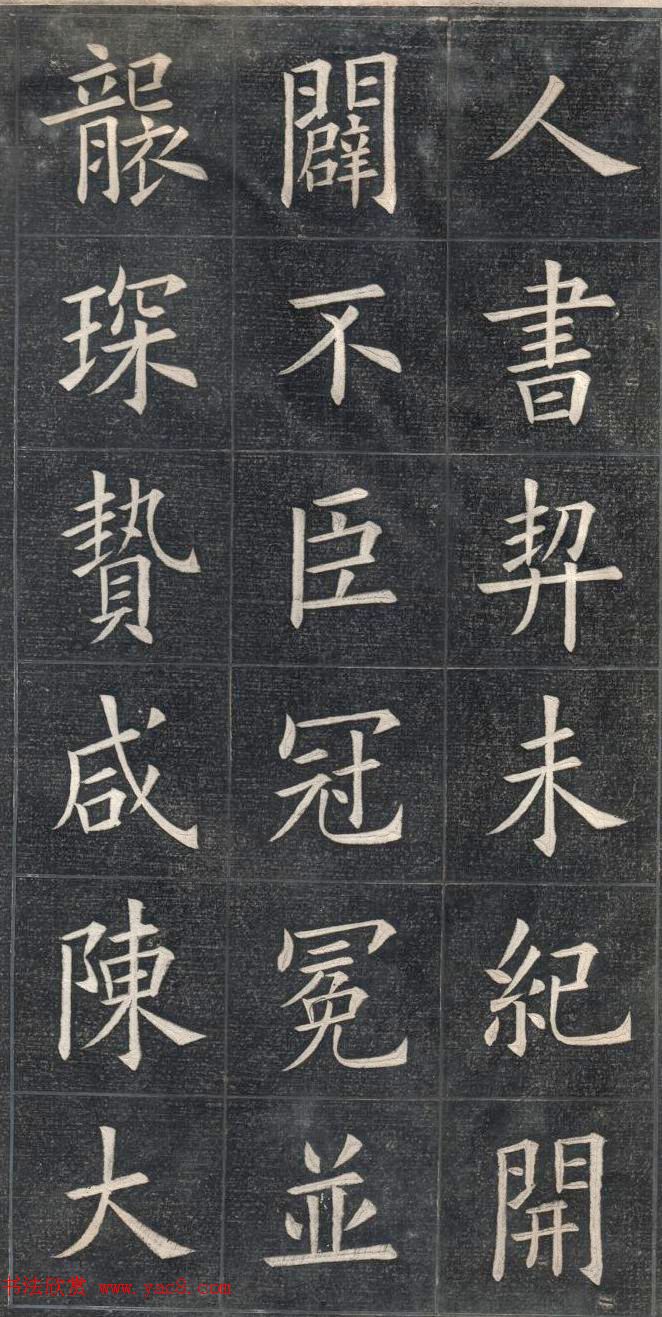 人書契未紀開
闢不臣冠冕並
襲琛贄咸陳大
书法欣赏 www.yac8.com